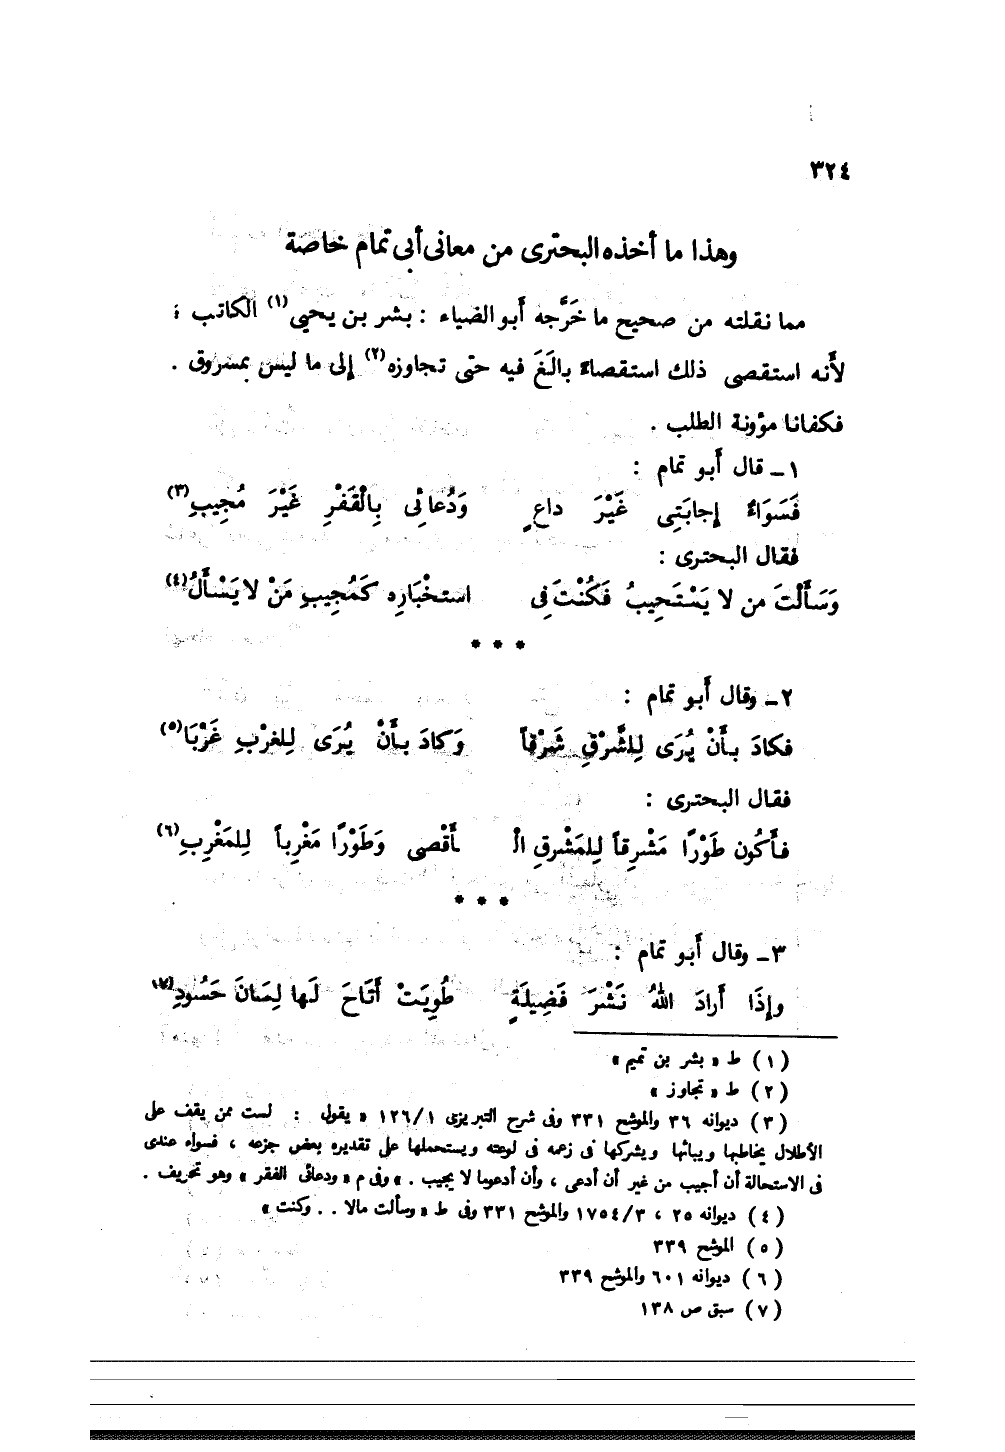 ٣٢٤
وهذا ما أخذه البحترى من معانى أبى تمام خاصة
مما نقلته من صحيح ما خَرَّجه أبو الضياء : بشر بن يحيى(١) الكاتب ؛
لأَنه استقصى ذلك استقصاءً بالَغَ فيه حتى تجاوزه(٢) إلى ما ليس بمسروق .
فكفانا مؤونة الطلب .
١ – قال أَبو تمام :
فَسَوَاءٌ إجابَتِى غَيْرَ داعٍ وَدُعائِى بِالْقَفْرِ غَيْرَ مُجِيبِ(٣)
فقال البحترى :
وَسَأَلْتَ من لا يَسْتَجِيبُ فَكُنْتَ فى استخْبَارِه كَمُجِيبِ مَنْ لا يَسْأَلُ(٤)
* * *
٢ – وقال أَبو تمام :
فكادَ بأَنْ يُرَى لِلشَّرْقِ شَرْقاً وَكادَ بأَنْ يُرَى لِلغرْبِ غَرْبَا(٥)
فقال البحترى :
فأَكُون طَوْرًا مَشْرِقاً لِلمَشْرِقِ الْـ ـأَقْصى وَطَوْرًا مَغْرِباً لِلمَغْرِبِ(٦)
* * *
٣ – وقال أَبو تمام :
وإِذَا أَرادَ اللهُ نَشْرَ فَضِيلَةٍ طُوِيَتْ أَتَاحَ لَها لِسَانَ حَسُودِ(٧)
( ١ ) ط « بشر بن تميم »
( ٢ ) ط « تجاوز »
( ٣ ) ديوانه ٣٦ والموشح ٣٣١ وفى شرح التبريزى ١٢٦/١ « يقول : لست ممن يقف على
الأطلال يخاطبها ويبائها ويشركها فى زعمه فى لوعته ويستحملها على تقديره بعض جزعه ، فسواء عندى
فى الاستحالة أن أجيب من غير أن أدعى ، وأن أدعوما لا يجيب . » وفى م « ودعائى الفقر » وهو تحريف .
( ٤ ) ديوانه ٢٥ ، ١٧٥٤/٣ والموشح ٣٣١ وفى ط « وسألت مالا . . وكنت »
( ٥ ) الموشح ٣٣٩
( ٦ ) ديوانه ٦٠١ والموشح ٣٣٩
( ٧ ) سبق ص ١٣٨